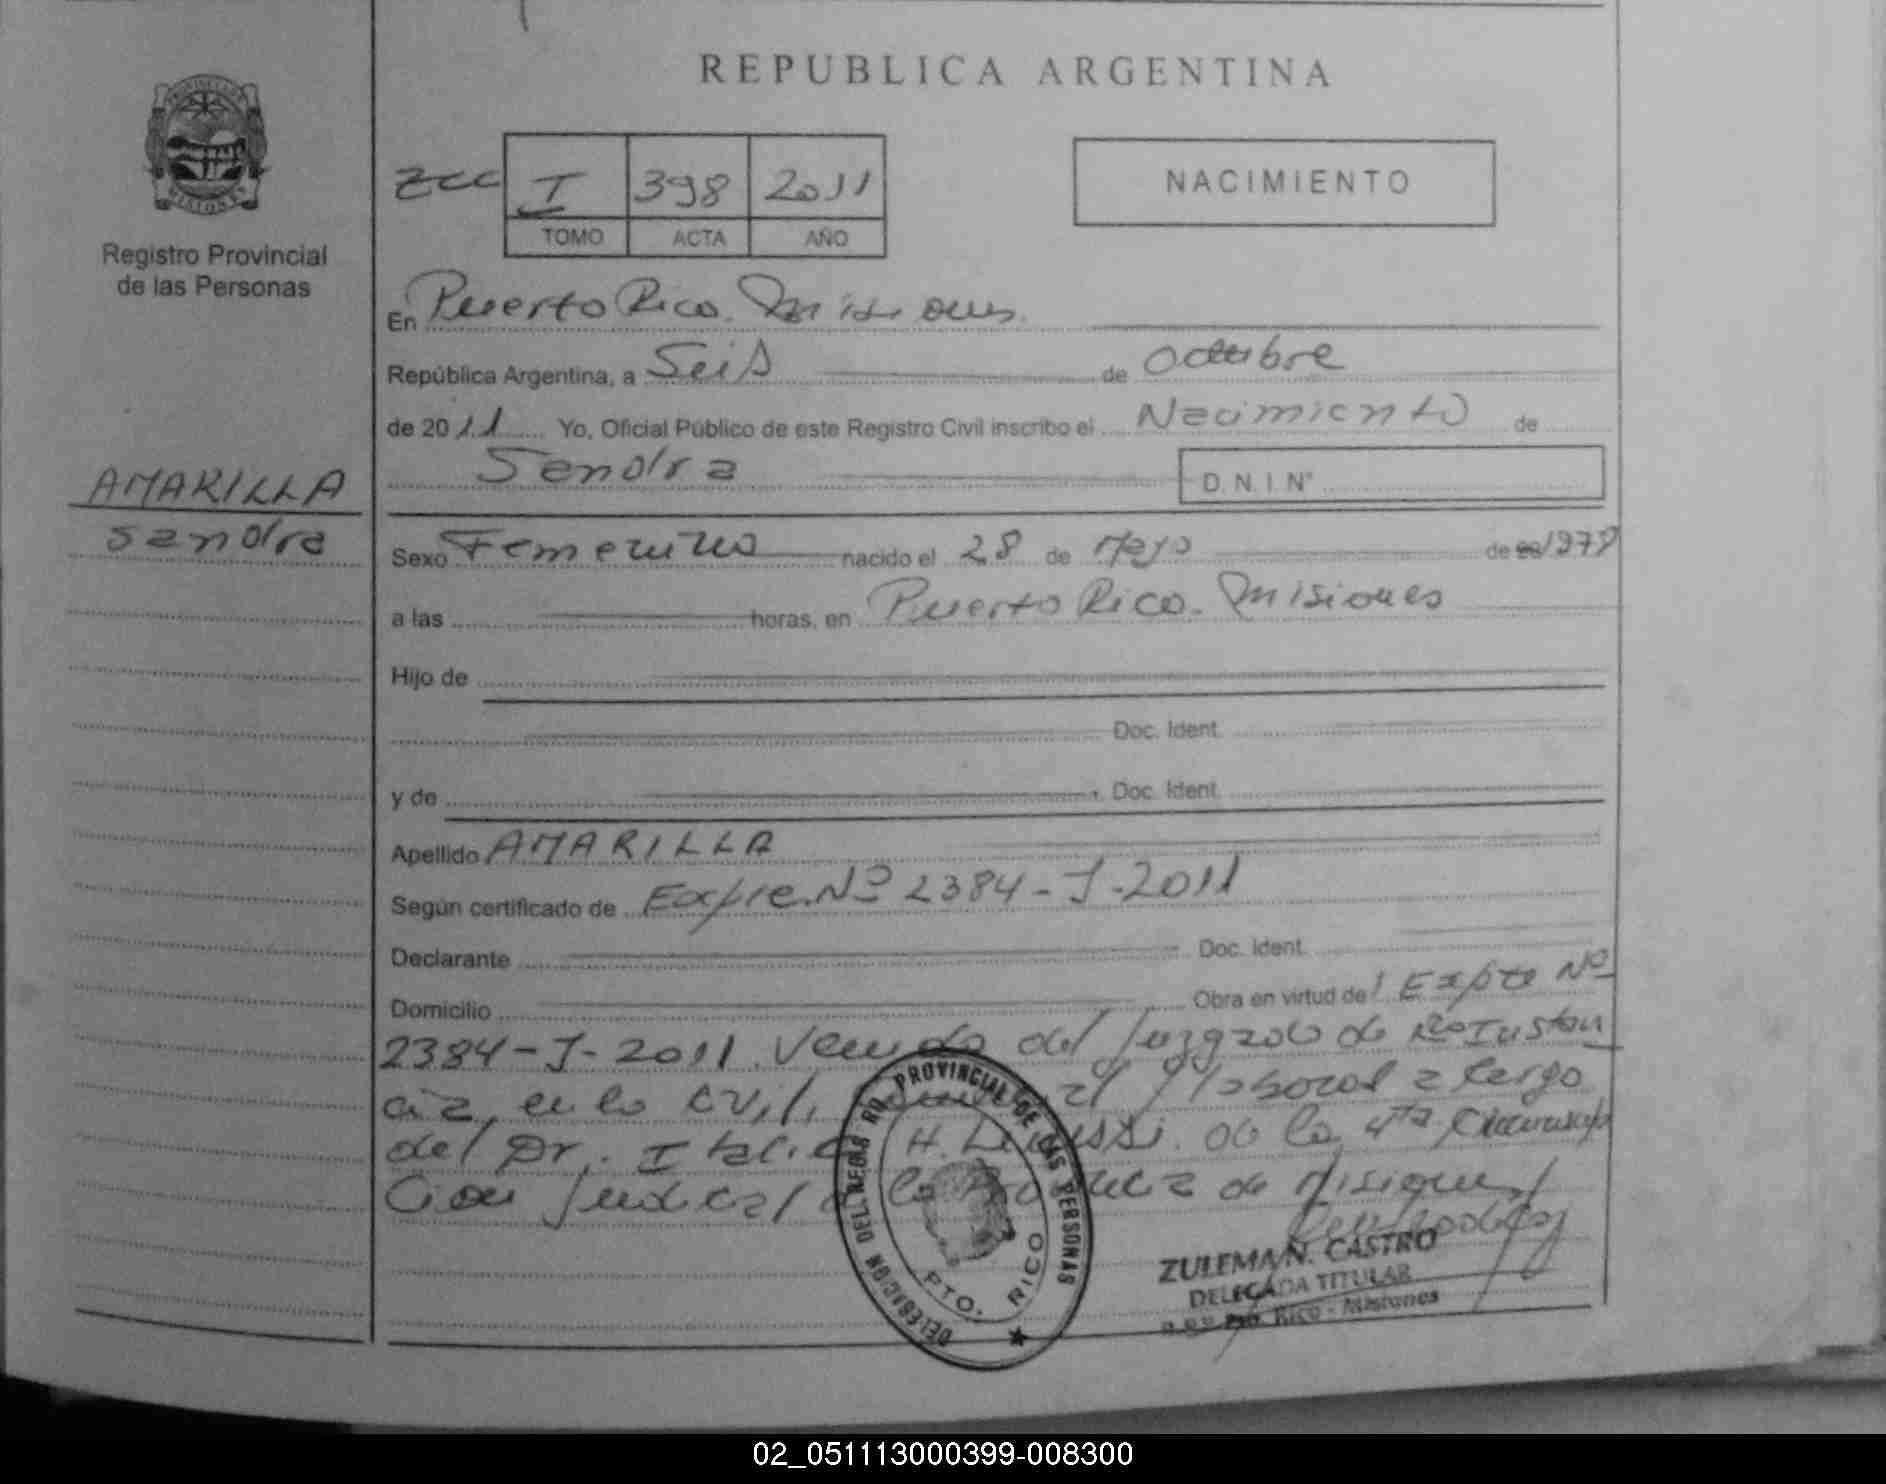 REPUBLICA ARGENTINA
PROVINCIA DE MISIONES
Registro Provincial
de las Personas
I 398 2011
TOMO ACTA AÑO
NACIMIENTO
En Puerto Rico. Misiones
República Argentina, a Seis de Octubre
de 2011 Yo, Oficial Público de este Registro Civil inscribo el Nacimiento de
Sandra D. N. I. N°
AMARILLA
Sandra
Sexo Femenino nacido el 28 de Mayo de
a las horas, en Puerto Rico. Misiones
Hijo de
Doc. Ident.
y de Doc. Ident.
Apellido AMARILLA
Según certificado de Expte. Nº 2384-J-2011
Declarante Doc. Ident.
Domicilio Obra en virtud del Expte Nº
2384-J-2011. Venido del Juzgado de 1ra Instan
cia en lo Civil, y laboral a cargo
del Dr. Italico H. de la 4ta Circunscrip
cion Judicial de la Provincia de Misiones
DELEGACION DEL REGIS RO PROVINCIAL DE LAS PERSONAS
PTO. RICO
ZULEMA N. CASTRO
DELEGADA TITULAR
Pto. Rico - Misiones
02_051113000399-008300